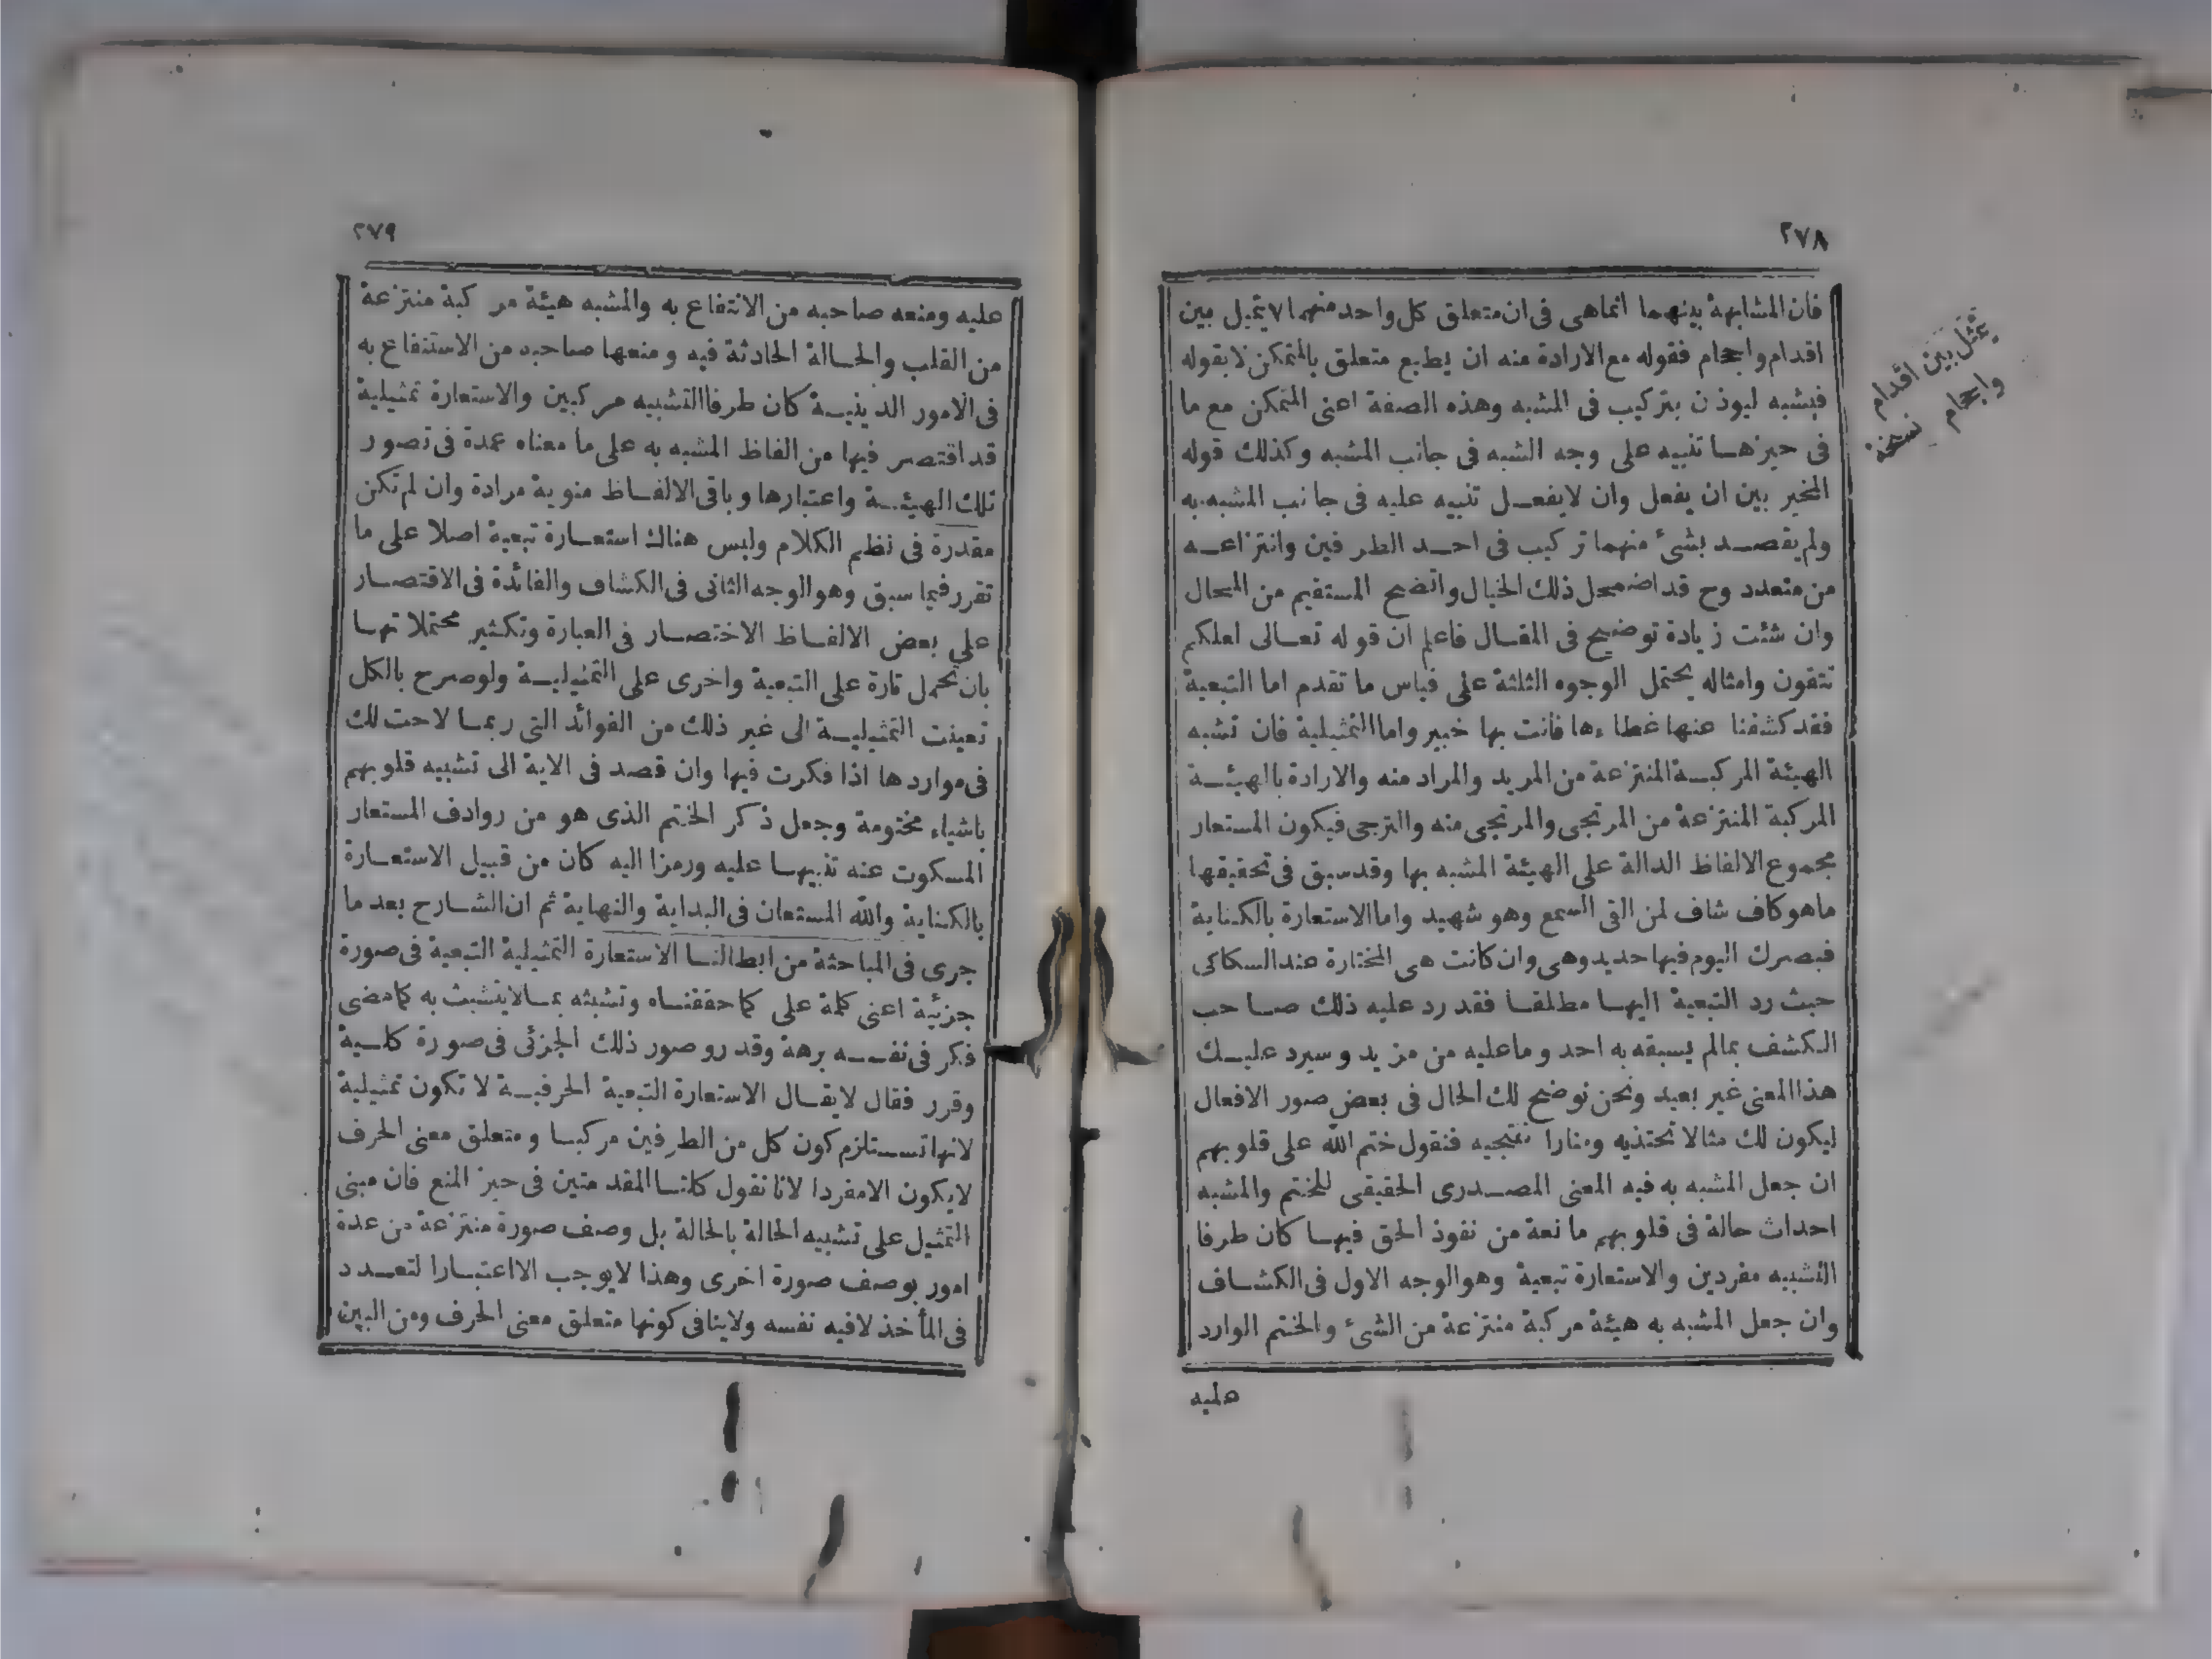 ٢٧٨
فان المشابهة بينهما انماهى فى ان متعلق كل واحد منهما لا يتميل بين
اقدام واحجام فقوله مع الارادة منه ان يطيع متعلق بالمتمكن لا بقوله
فيشبه ليوذن بتركيب فى المشبه وهذه الصفة اعنى المتمكن مع ما
فى حيزها تنبيه على وجه الشبه فى جانب المشبه وكذلك قوله
المخير بين ان يفعل وان لا يفعل تنبيه عليه فى جانب المشبه به
ولم يقصد بشئ منهما تركيب فى احد الطرفين وانتزاعه
من متعدد وح قد اضمحل ذلك الخيال واتضح المستقيم من المحال
وان شئت زيادة توضيح فى المقال فاعلم ان قوله تعالى لعلكم
تتقون وامثاله يحتمل الوجوه الثلثة على قياس ما تقدم اما التبعية
فقد كشفنا عنها غطاءها فانت بها خبير واما التمثيلية فان تشبه
الهيئة المركبة المنتزعة من المريد والمراد منه والارادة بالهيئة
المركبة المنتزعة من المرتجى والمرتجى منه والترجى فيكون المستعار
مجموع الالفاظ الدالة على الهيئة المشبه بها وقد سبق فى تحقيقها
ماهو كاف شاف لمن القى السمع وهو شهيد واما الاستعارة بالكناية
فبصرك اليوم فيها حديد وهى وان كانت هى المختارة عند السكاكى
حيث رد التبعية اليها مطلقا فقد رد عليه ذلك صاحب
الكشف بمالم يسبقه به احد وما عليه من مزيد وسيرد عليك
هذا المعنى غير بعيد ونحن نوضح لك الحال فى بعض صور الافعال
ليكون لك مثالا تحتذيه ومنارا تنتحيه فنقول ختم الله على قلوبهم
ان جعل المشبه به فيه المعنى المصدرى الحقيقى للختم والمشبه
احداث حالة فى قلوبهم مانعة من نفوذ الحق فيها كان طرفا
التشبيه مفردين والاستعارة تبعية وهو الوجه الاول فى الكشاف
وان جعل المشبه به هيئة مركبة منتزعة من الشئ والختم الوارد
عليه
يتمثل بين اقدام
واحجام نسخة
٢٧٩
عليه ومنعه صاحبه من الانتفاع به والمشبه هيئة مركبة منتزعة
من القلب والحالة الحادثة فيه ومنعها صاحبه من الاستنفاع به
فى الامور الدينية كان طرفا التشبيه مركبين والاستعارة تمثيلية
قد اقتصر فيها من الفاظ المشبه به على ما معناه عمدة فى تصور
تلك الهيئة واعتبارها وباقى الالفاظ منوية مرادة وان لم تكن
مقدرة فى نظم الكلام وليس هناك استعارة تبعية اصلا على ما
تقرر فيما سبق وهو الوجه الثانى فى الكشاف والفائدة فى الاقتصار
على بعض الالفاظ الاختصار فى العبارة وتكثير محتملاتها
بان تحمل تارة على التبعية واخرى على التمثيلية ولو صرح بالكل
تعينت التمثيلية الى غير ذلك من الفوائد التى ربما لاحت لك
فى مواردها اذا فكرت فيها وان قصد فى الاية الى تشبيه قلوبهم
باشياء مختومة وجعل ذكر الختم الذى هو من روادف المستعار
المسكوت عنه تنبيها عليه ورمزا اليه كان من قبيل الاستعارة
بالكناية والله المستعان فى البداية والنهاية ثم ان الشارح بعد ما
جرى فى المباحثة من ابطالنا الاستعارة التمثيلية التبعية فى صورة
جزئية اعنى كلمة على كما حققناه وتشبثه بما لا يتشبث به كما مضى
فكر فى نفسه برهة وقدر وصور ذلك الجزئى فى صورة كلية
وقرر فقال لا يقال الاستعارة التبعية الحرفية لا تكون تمثيلية
لانها تستلزم كون كل من الطرفين مركبا ومتعلق معنى الحرف
لا يكون الا مفردا لانا نقول كلتا المقدمتين فى حيز المنع فان مبنى
التمثيل على تشبيه الحالة بالحالة بل وصف صورة منتزعة من عدة
امور بوصف صورة اخرى وهذا لا يوجب الا اعتبارا لتعدد
فى المأخذ لا فيه نفسه ولا ينافى كونها متعلق معنى الحرف ومن البين